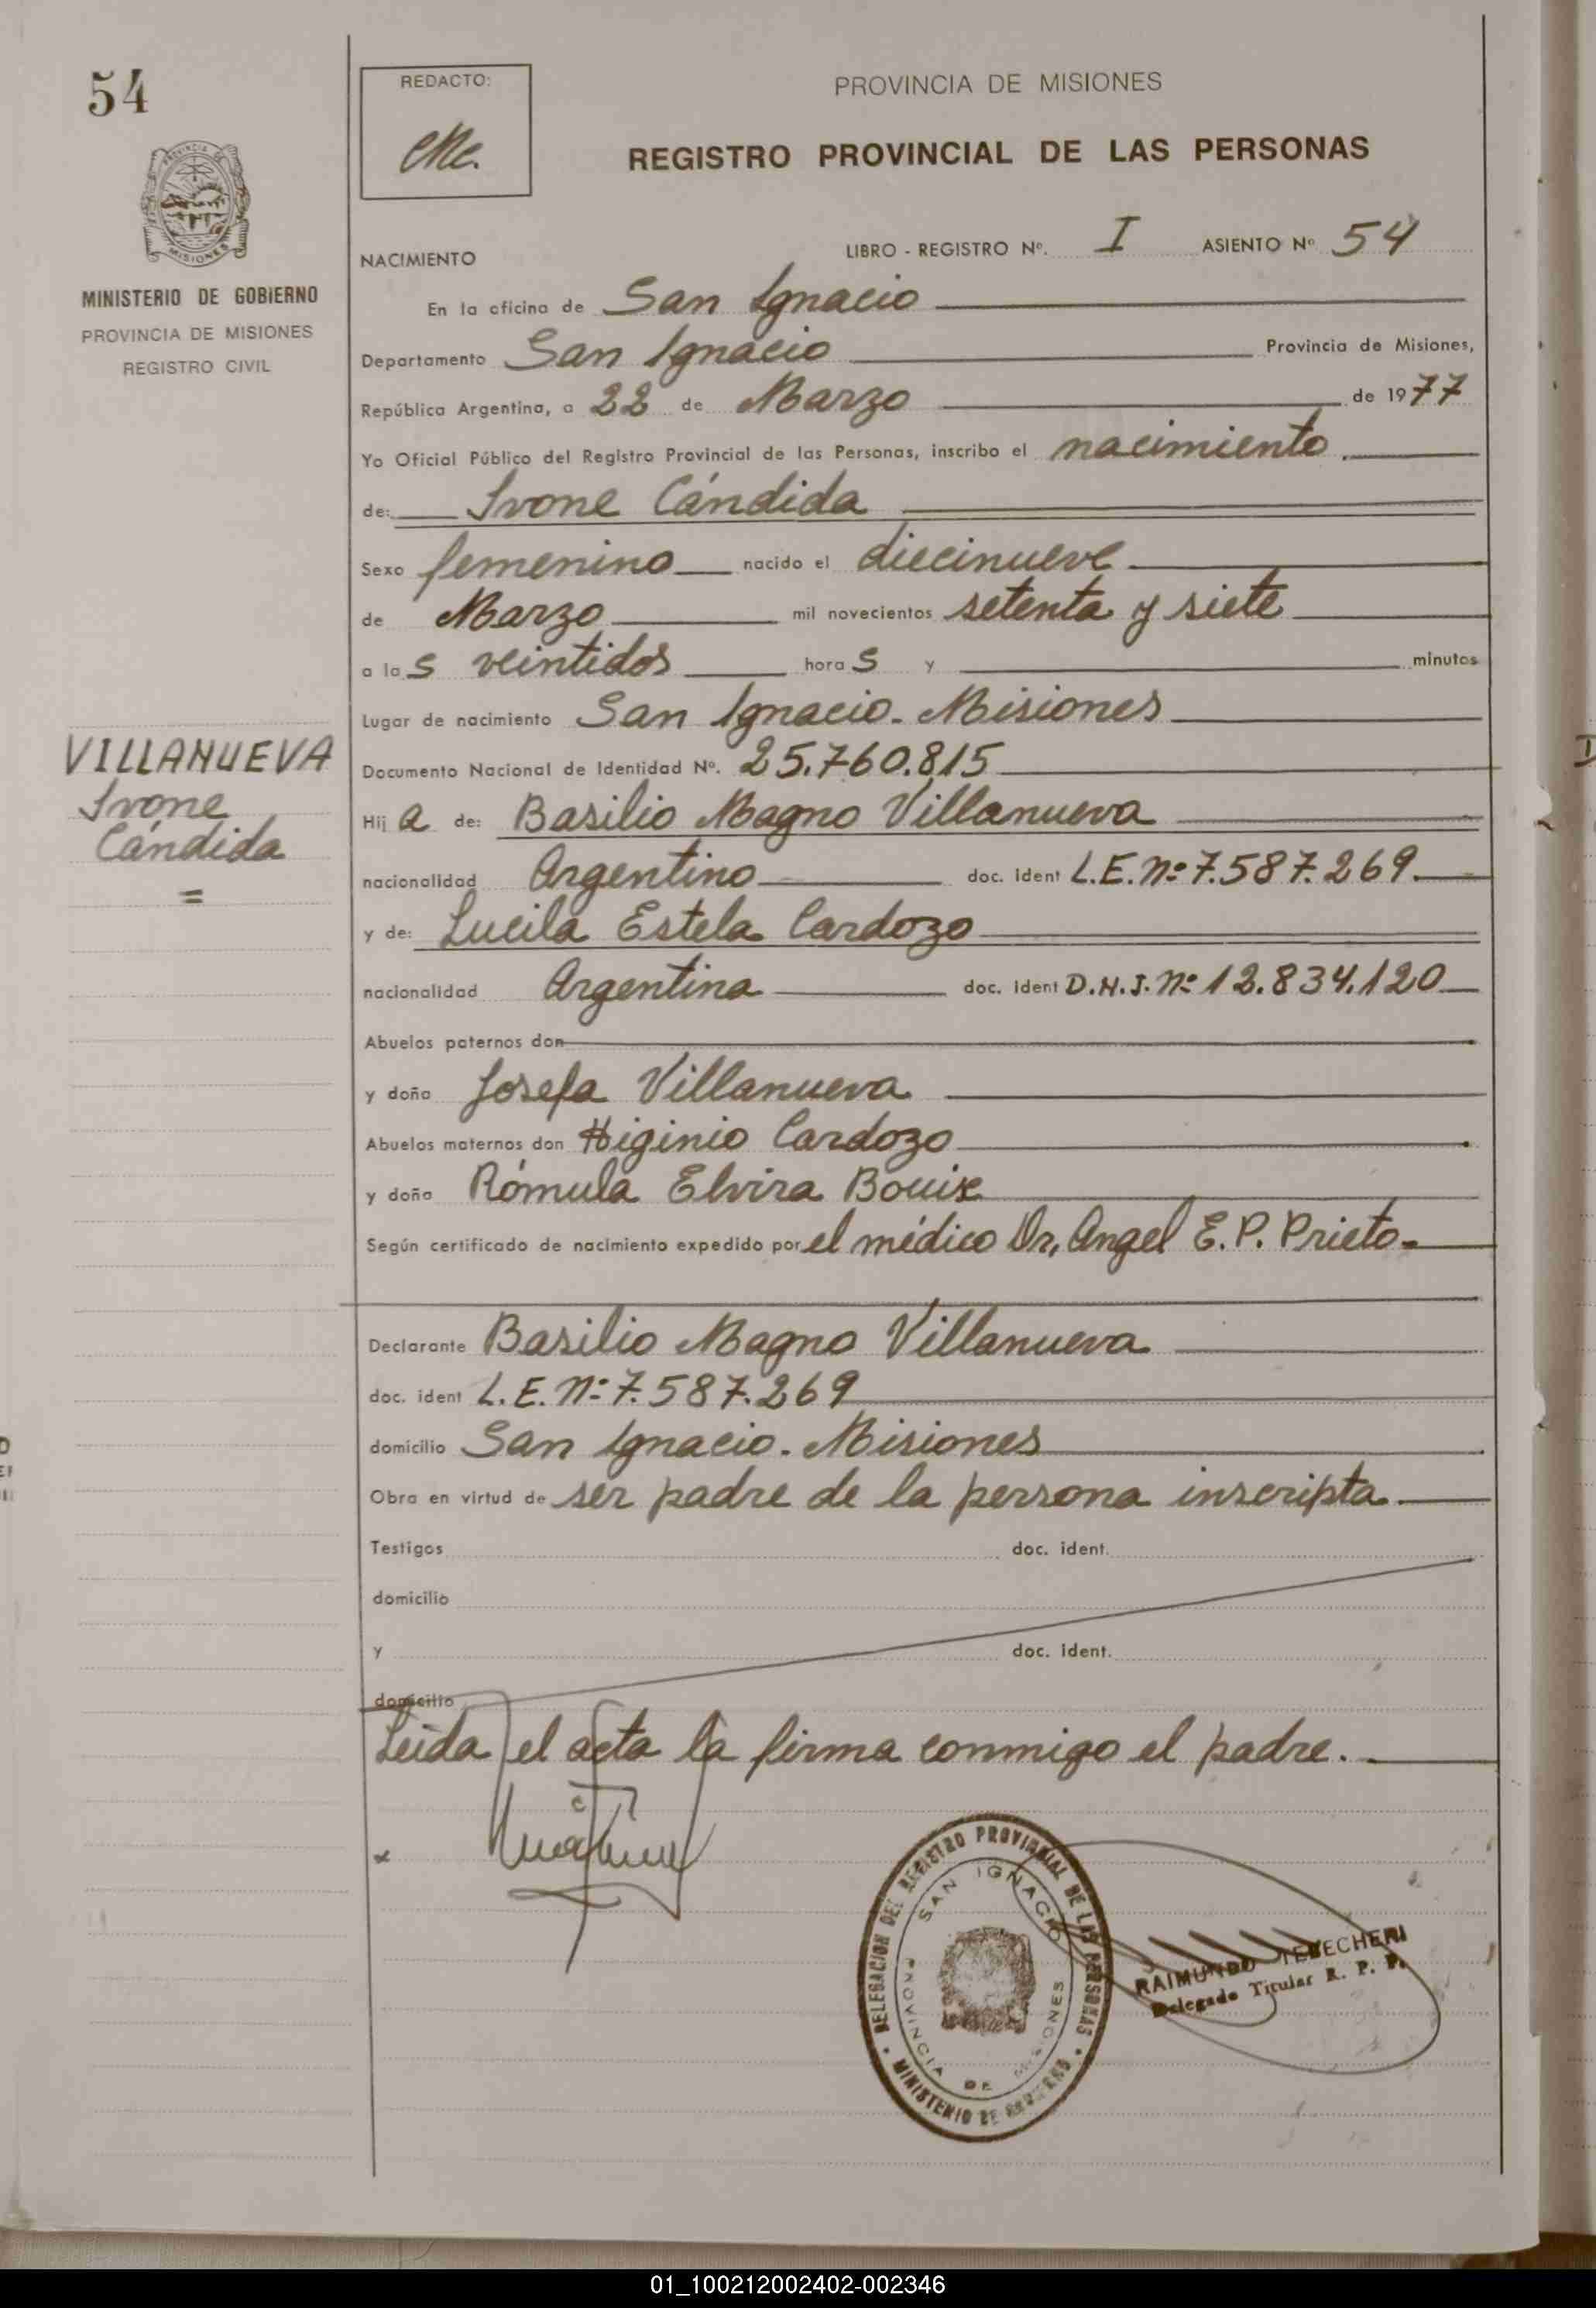 54
MINISTERIO DE GOBIERNO
PROVINCIA DE MISIONES
REGISTRO CIVIL
VILLANUEVA
Ivone
Cándida
=
REDACTO:
PROVINCIA DE MISIONES
REGISTRO PROVINCIAL DE LAS PERSONAS
NACIMIENTO LIBRO - REGISTRO Nº. I ASIENTO Nº 54
En la oficina de San Ignacio
Departamento San Ignacio Provincia de Misiones,
República Argentina, a 22 de Marzo de 1977
Yo Oficial Público del Registro Provincial de las Personas, inscribo el nacimiento
de: Ivone Cándida
Sexo femenino nacido el diecinueve
de Marzo mil novecientos setenta y siete
a las veintidos horas y minutos
Lugar de nacimiento San Ignacio. Misiones
Documento Nacional de Identidad Nº. 25.760.815
Hija de: Basilio Magno Villanueva
nacionalidad Argentino doc. ident L.E. Nº 7.587.269.
y de: Lucila Estela Cardozo
nacionalidad Argentina doc. ident D.N.I. Nº 12.834.120
Abuelos paternos don
y doña Josefa Villanueva
Abuelos maternos don Higinio Cardozo
y doña Rómula Elvira Bouix
Según certificado de nacimiento expedido por el médico Dr, Angel E. P. Prieto.
Declarante Basilio Magno Villanueva
doc. ident L.E. Nº 7.587.269
domicilio San Ignacio. Misiones
Obra en virtud de ser padre de la persona inscripta.
Testigos doc. ident.
domicilio
y doc. ident.
domicilio
Leída el acta la firma conmigo el padre.
DELEGACION DEL REGISTRO PROVINCIAL DE LAS PERSONAS
SAN IGNACIO
PROVINCIA DE MISIONES
MINISTERIO DE GOBIERNO
RAIMUNDO TEBECHERI
Delegado Titular R. P. P.
01_100212002402-002346